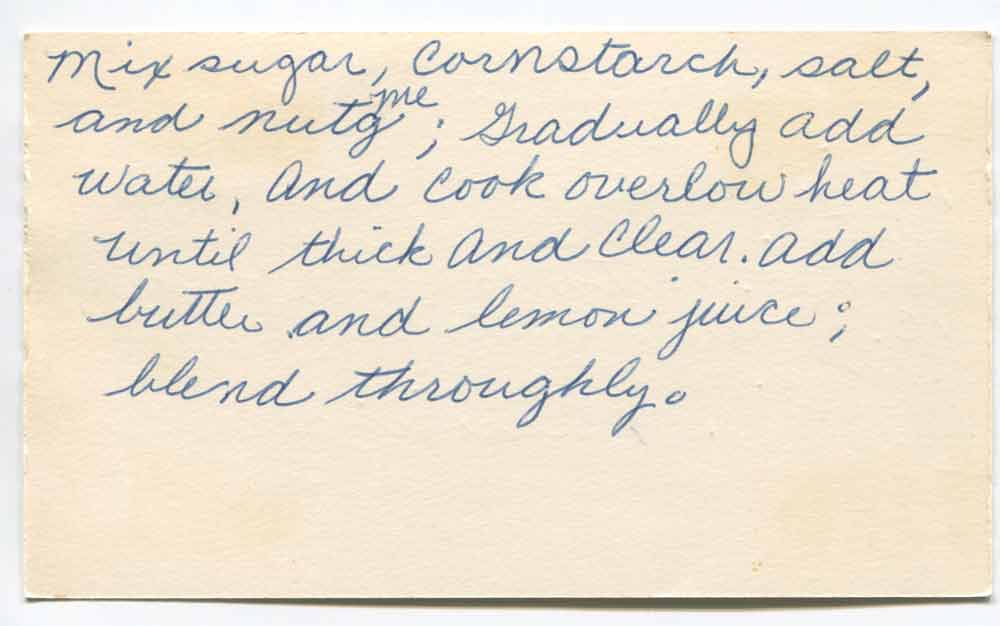 Mix sugar, Cornstarch, salt,
and nutgme; Gradually add
water, and cook over low heat
until thick and clear. add
butter and lemon juice;
blend throughly.